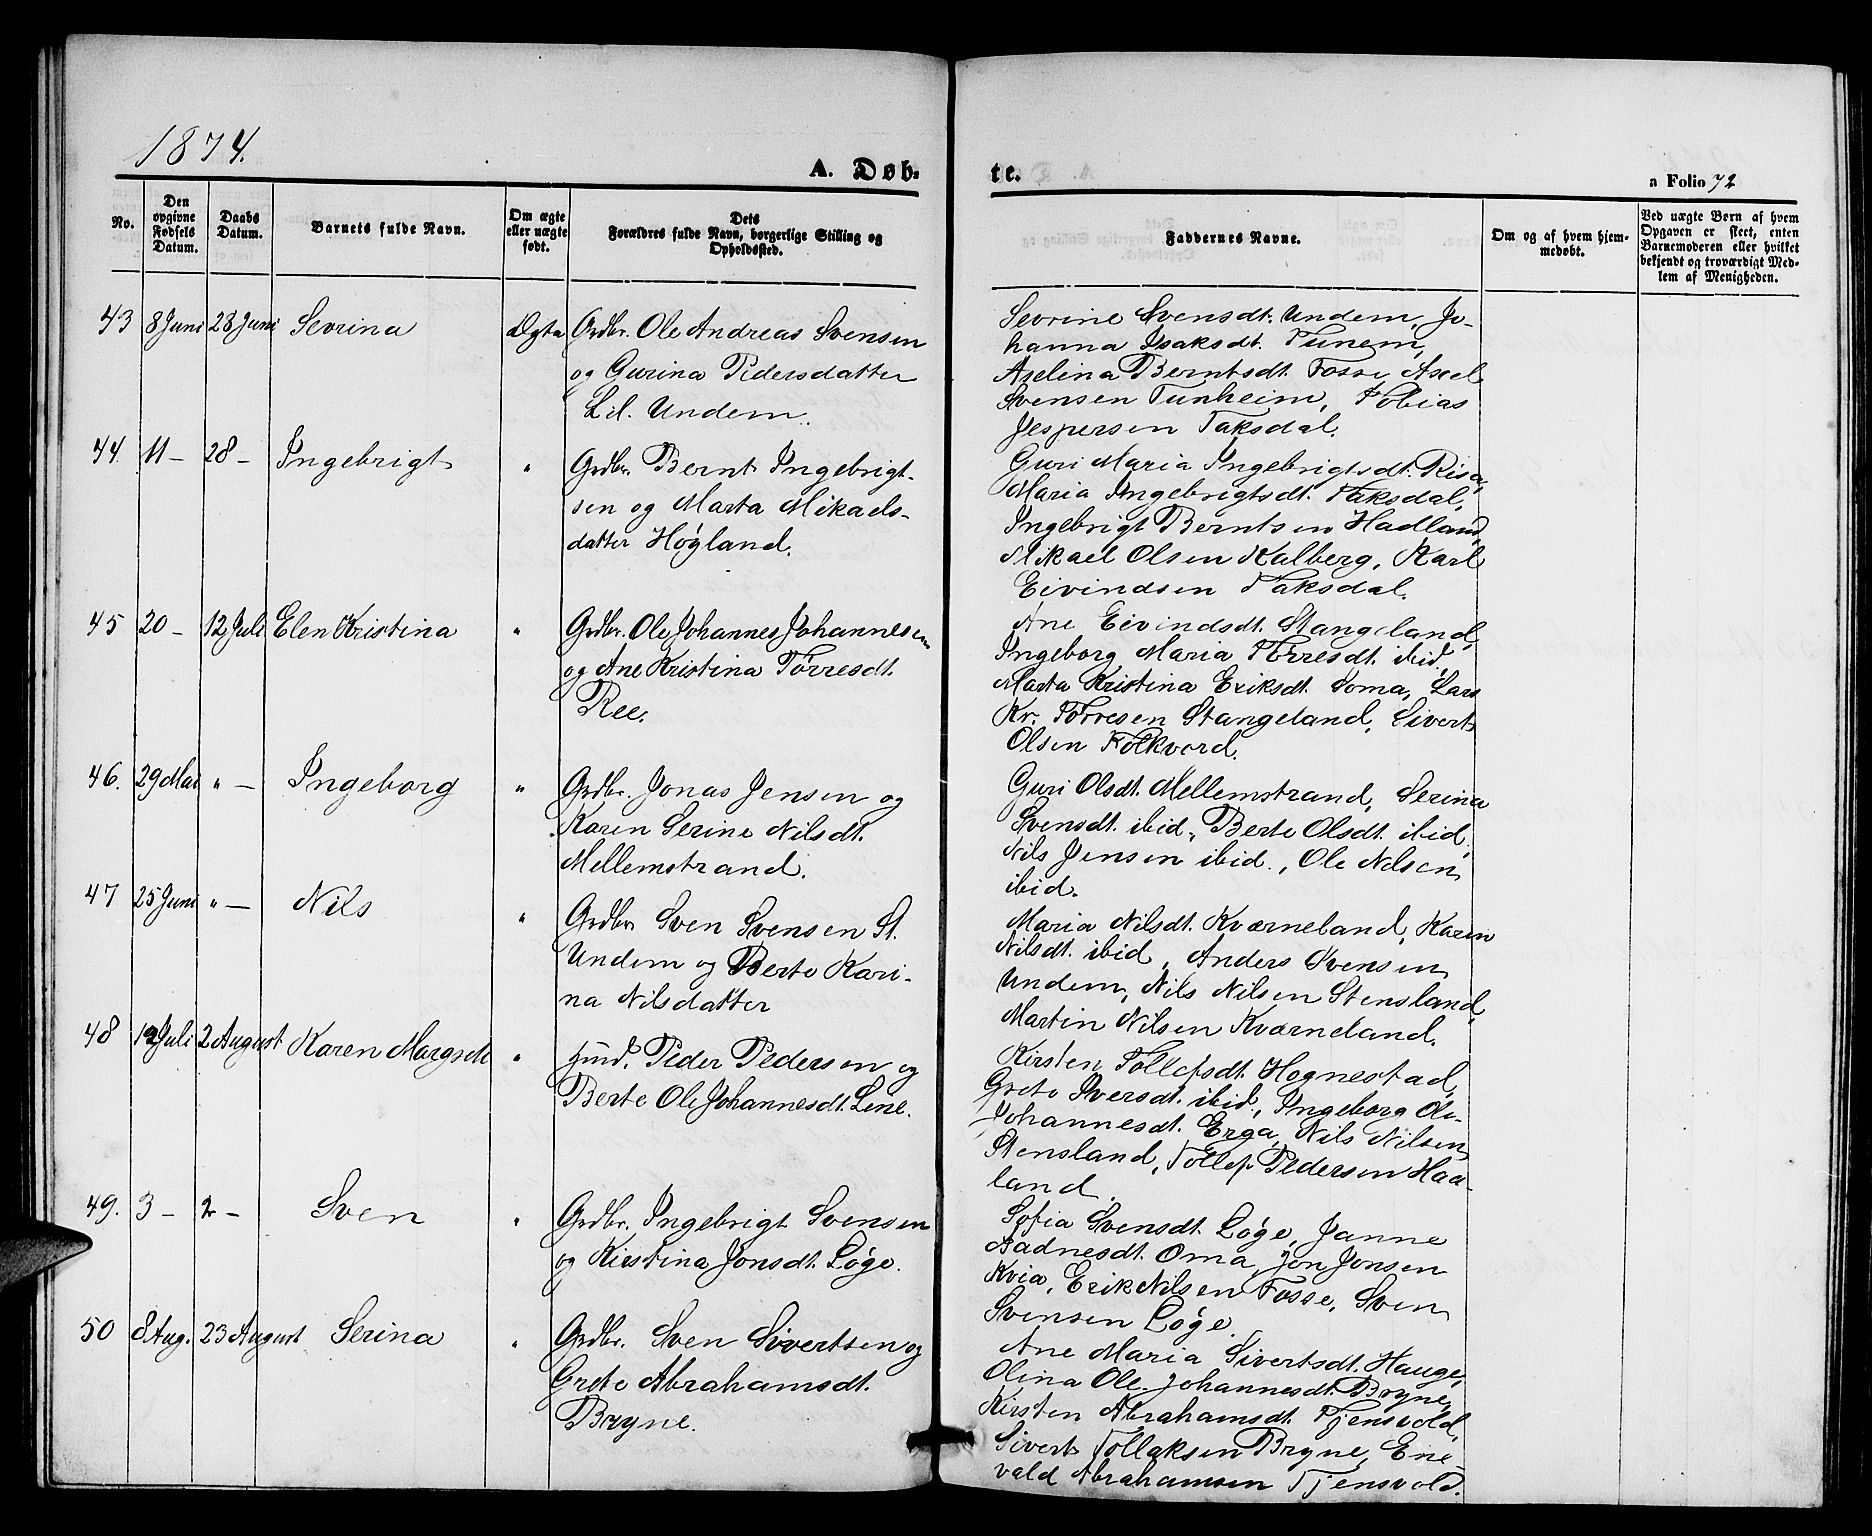 1874.
A. Døb-
te.
a Folio 72
No.
Den opgivne Fødsels Datum.
Daabs Datum.
Barnets fulde Navn.
Om ægte eller uægte født.
Dets Forældres fulde Navn, borgerlige Stilling og Opholdssted.
Faddernes Navne.
Om og af hvem hjemmedøbt.
Ved uægte Børn af hvem Opgaven er skeet, enten Barnemoderen eller hvilket bekjendt og troværdigt Medlem af Menigheden.
43 8 Juni 28 Juni Sevrina Ægta Grdbr. Ole Andreas Svensen
og Gurina Pedersdatter
Lil. Undem.
Sevrine Svensdt. Undem, Jo-
hanna Isaksdt. Tunem,
Aselina Berntsdt. Fosse, Axel
Svensen Tunheim, Tobias
Jespersen Taksdal.
44. 11 – 28 – Ingebrigt " Grdbr. Bernt Ingebrigt-
sen og Marta Mikaels-
datter Høyland.
Guri Maria Ingebrigtsdt. Risa,
Maria Ingebrigtsdt. Taksdal,
Ingebrigt Berntsen Hadland,
Mikael Olsen Kalberg, Karl
Eivindsen Taksdal.
45 20 – 12 Juli Elen Kristina " Grdbr. Ole Johannes Johannesen
og Ane Kristina Tørresdt.
Ree.
Ane Eivindsdt. Stangeland,
Ingeborg Maria Tørresdt. ibid,
Marta Kristina Eriksdt. Soma, Lars
Kr. Tørresen Stangeland, Sivert
Olsen Folkvord.
46. 29 Mai " – Ingeborg " Grdbr. Jonas Jensen og
Karen Serine Nilsdt.
Mellemstrand.
Guri Olsdt. Mellemstrand, Serina
Svensdt. ibid, Berte Olsdt. ibid,
Nils Jensen ibid., Ole Nilsen
ibid.
47 25 Juni " – Nils " Grdbr Sven Svensen St.
Undem og Berte Kari-
na Nilsdatter
Maria Nilsdt. Kværneland, Karen
Nilsdt. ibid, Anders Svensen
Undem, Nils Nilsen Stensland,
Martin Nilsen Kværneland.
48 12 Juli 2 August Karen Margrete " Peder Pedersen og
Berte Ole Johannesdt. Line.
Kirsten Tollefsdt. Hognestad,
Grete Iversdt. ibid, Ingeborg Ole
Johannesdt. Erga, Nils Nilsen
Stensland, Tollef Pedersen Haa-
land.
49. 3 – 2 – Sven " Grdbr. Ingebrigt Svensen
og Kirstina Jonsdt. Løge.
Sofia Svensdt. Løge, Janne
Aadnesdt. Oma, Jon Jonsen
Kvia, Erik Nilsen Fosse, Sven
Svensen Løge.
50 8 Aug. 23 August Serina " Grdbr. Sven Sivertsen og
Grete Abrahamsdt.
Bryne.
Ane Maria Sivertsdt. Hauge,
Olina Ole Johannesdt. Bryne,
Kirsten Abrahamsdt. Tjensvold,
Sivert Tollaksen Bryne, Ene-
vald Abrahamsen Tjensvold.